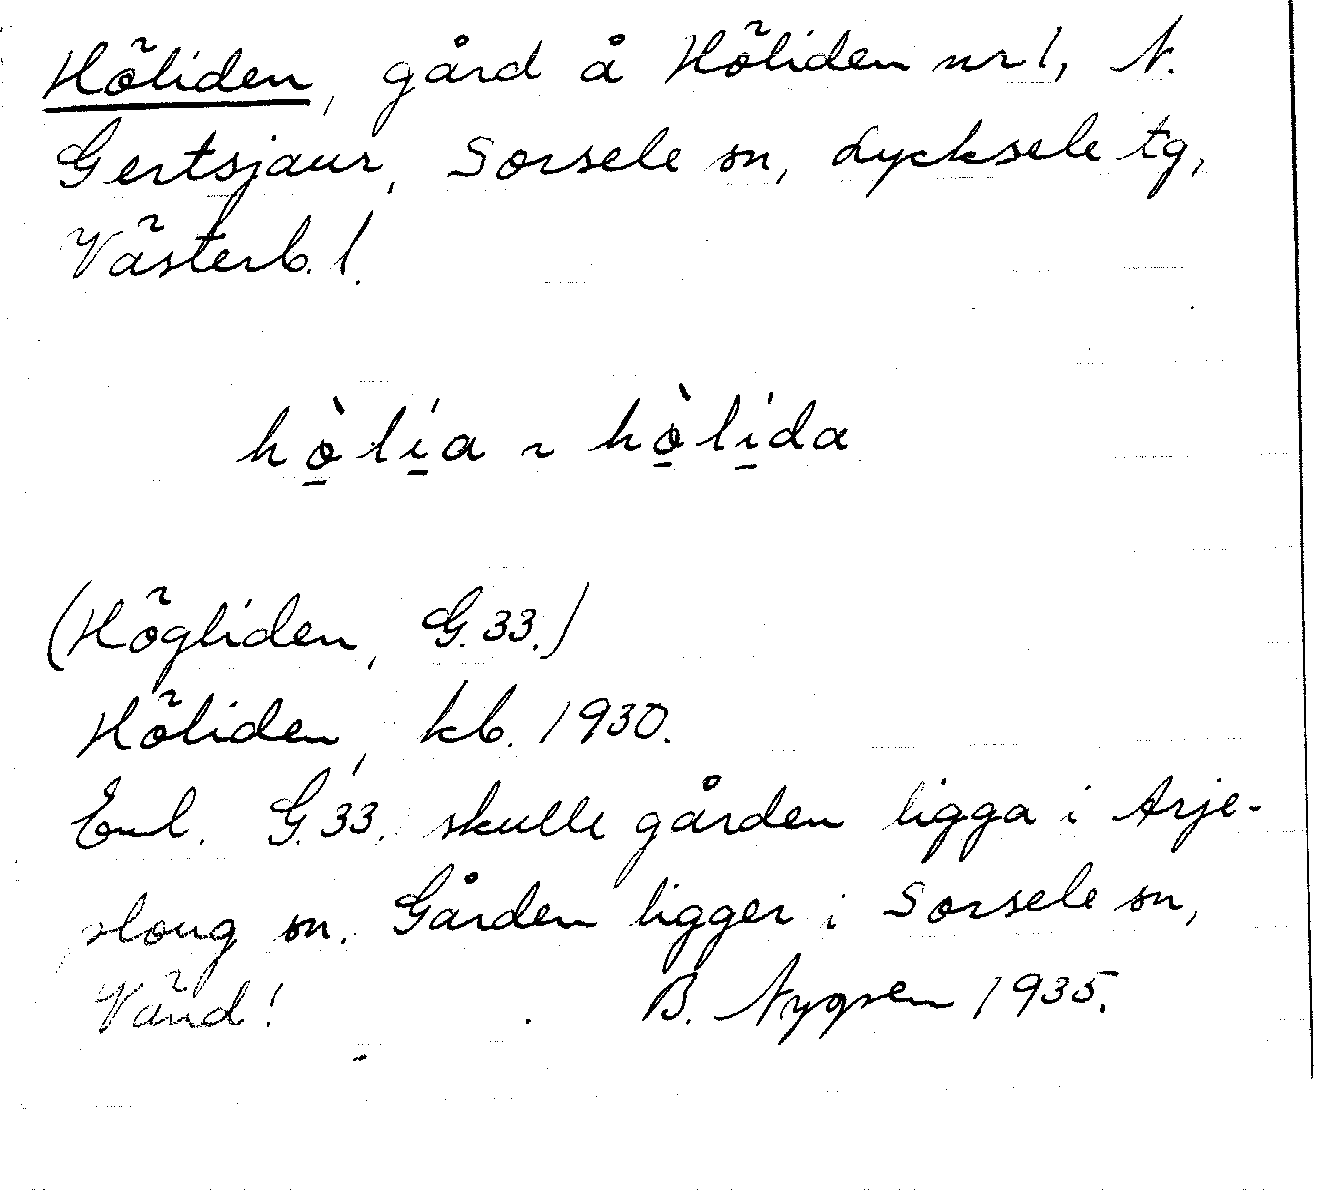 Höliden, gård å Höliden nr 1, N.
Gertsjaur, Sorsele sn, Lycksele tg,
Västerb. l.
hò̠lí̠a ~ hò̠lí̠da
(Högliden, G. 33.)
Höliden, kb. 1930.
Enl. G. 33. skulle gården ligga i Arje-
ploug sn. Gården ligger i Sorsele sn,
Vänd! B. 1935.